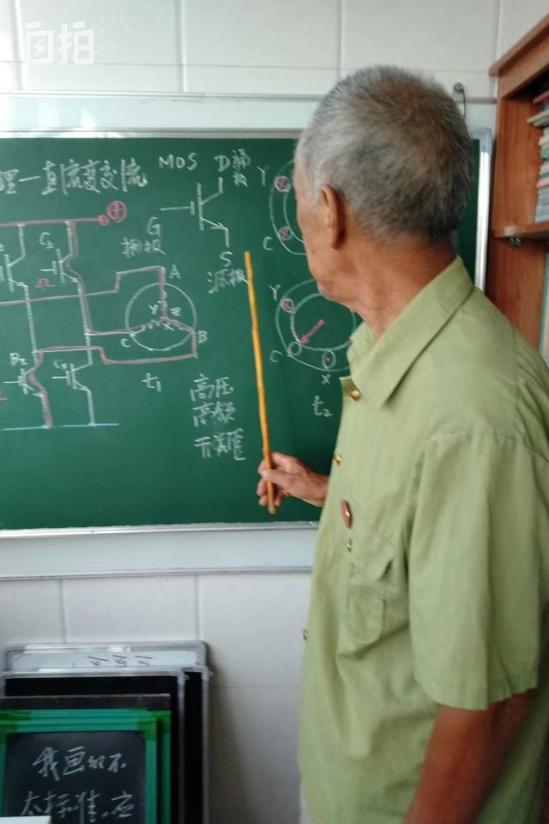 自拍
理一直流变交流
MOS
D漏极
G
栅极
S
源极
A
Y
Z
C
B
C₂
B₂
t₁
高压
高频
干燥
Y
C
Y
C
X
t₂
我画的不
太标准,应